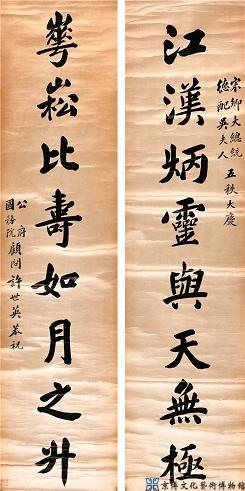 宋卿大總統
德配吳夫人
五秩大慶
江漢炳靈與天無極
華崧比壽如月之升
公府
國務院
顧問許世英恭祝
京博文化藝術博物館